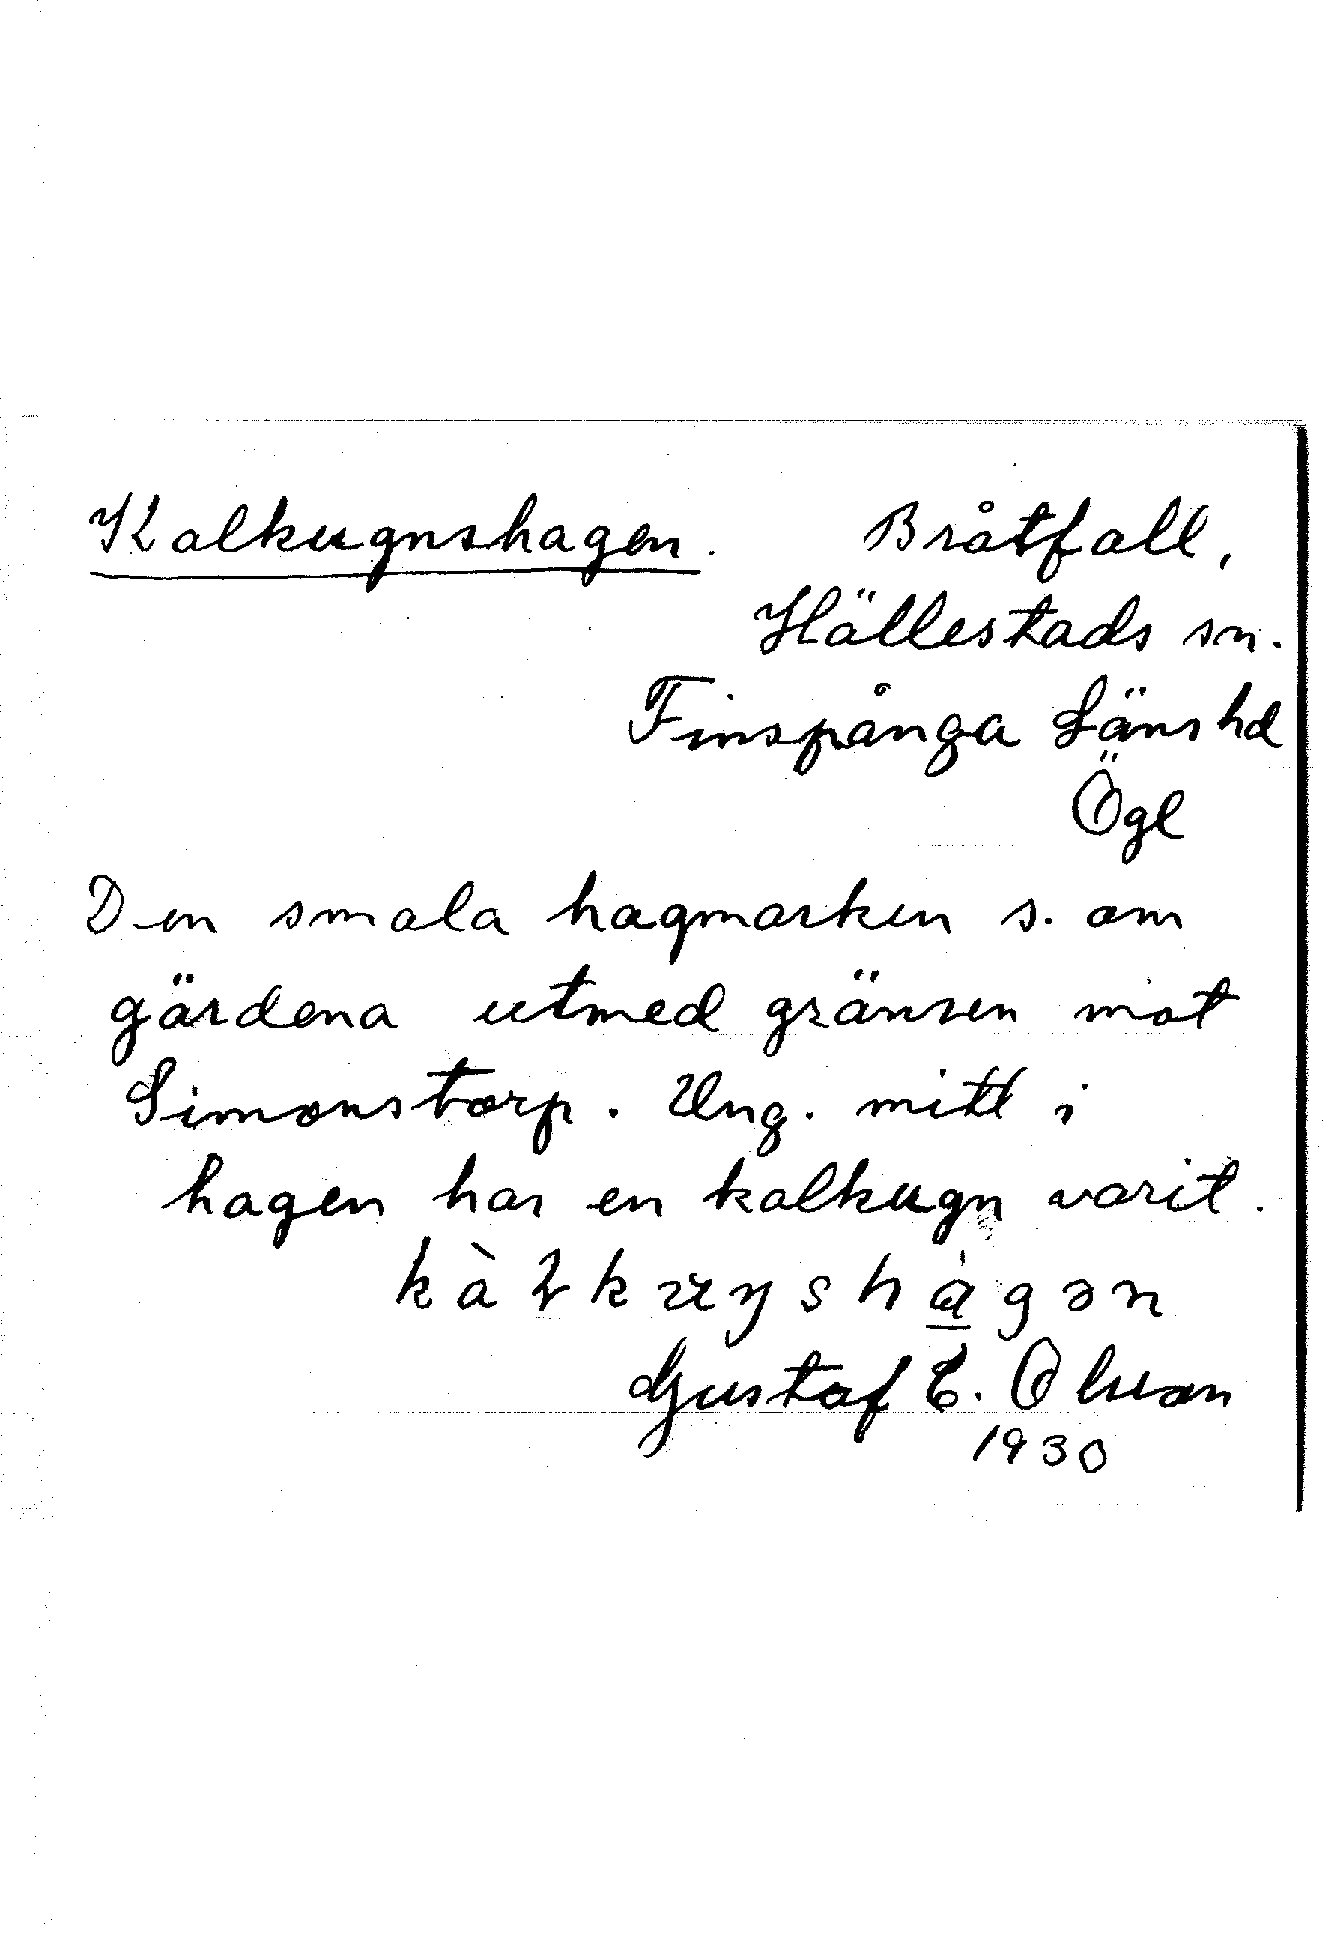 Kalkugnshagen. Bråtfall,
Hällestads sn.
Finspånga Läns hd
Ögl
Den smala hagmarken s. om
gärdena utmed gränsen mot
Simonstorp. Ung. mitt i
hagen har en kalkugn varit.
Gustaf E. Olsson
1930